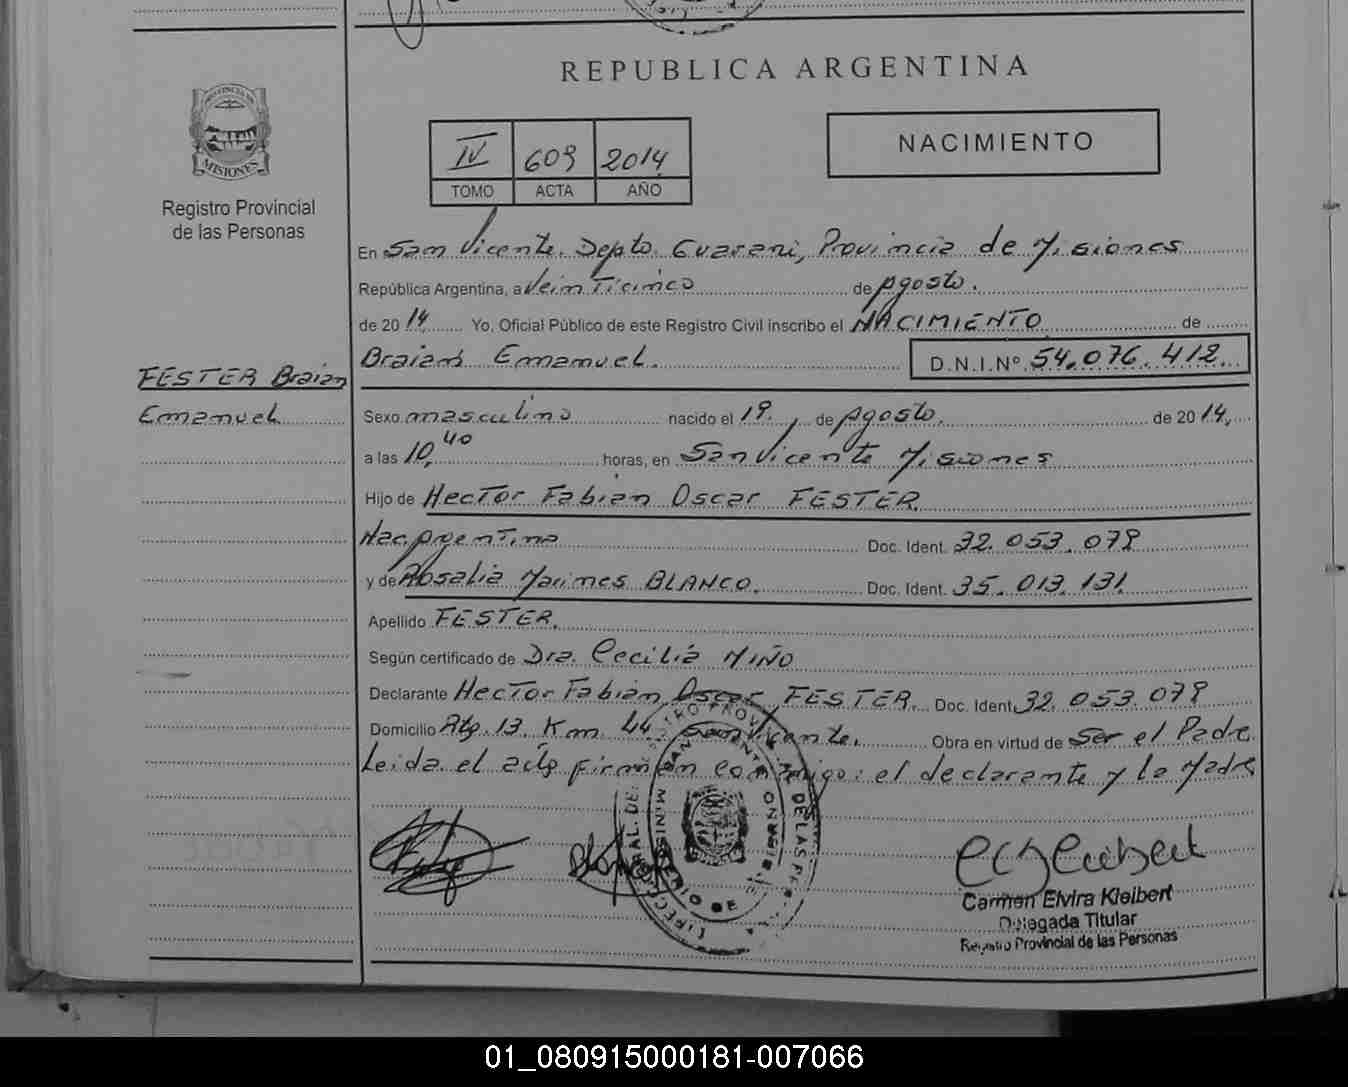 REPUBLICA ARGENTINA
PROVINCIA DE
MISIONES
Registro Provincial
de las Personas
IV 609 2014
TOMO ACTA AÑO
NACIMIENTO
En San Vicente. Depto. Guarani, Provincia de Misiones
República Argentina, a Veinticinco de Agosto.
de 2014 Yo, Oficial Público de este Registro Civil inscribo el NACIMIENTO de
Braian Emanuel. D.N.I.Nº 54.076.412
FESTER Braian
Emanuel
Sexo masculino nacido el 19. de Agosto. de 2014,
a las 10,40 horas, en San Vicente Misiones
Hijo de Hector Fabian Oscar FESTER.
Nac. Argentina Doc. Ident. 32.053.079
y de Rosalia Marines BLANCO. Doc. Ident. 35.013.131.
Apellido FESTER.
Según certificado de Dra. Cecilia MIÑO
Declarante Hector Fabian Oscar FESTER. Doc. Ident. 32.053.079
Domicilio Rta. 13. Km. 44. San Vicente. Obra en virtud de Ser el Padre.
Leida el acta firman conmigo: el declarante y la Madre
Carmen Elvira Kleibert
Delegada Titular
Registro Provincial de las Personas
01_080915000181-007066